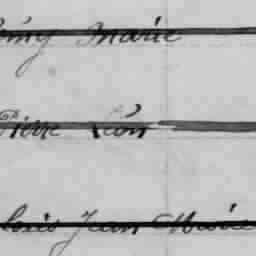 Rémy Marie
Pierre Léon
Louis Jean Marie